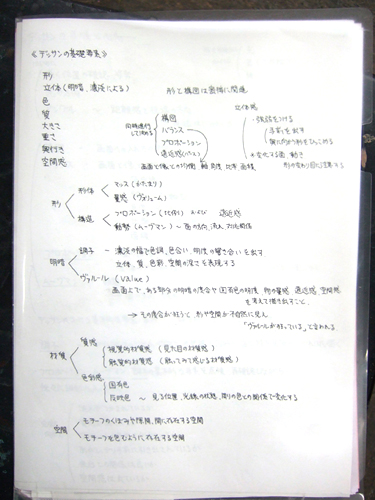 《デッサンの基礎要素》
形
立体（明暗、濃淡による）
色
質
大きさ
重さ
奥行き
空間感
形と構図は密接に関連
同時進行して決める
構図
バランス
プロポーション
遠近感（パース）
立体感
・強弱をつける
手前を出す
奥に向かう形をひっこめる
＊変化する面、動き
形の変わり目に注意する
形
形体
マッス（かたまり）
量感（ヴォリューム）
構造
プロポーション（比例） および 遠近感
動勢（ムーヴマン）〜面の方向、流れ、対比関係
明暗
調子 － 濃淡の幅と色調、色合い、明度の響き合いを出す
立体、質、色彩、空間の深さを表現する
ヴァルール（value）
画面上で、ある部分の明暗の度合や固有色の明度、物の量感、遠近感、空間感
を考えて描き出すこと。
→ その度合が狂うと、形や空間が不自然に見え
「ヴァルールが狂っている」と言われる。
材質
質感
視覚的材質感（見た目の材質感）
触覚的材質感（触って感じる材質感）
色彩感
固有色
反映色 〜 見る位置、光線の状態、周りの色との関係で変化する
空間
モチーフのくぼみや隙間、間に存在する空間
モチーフを包むように存在する空間